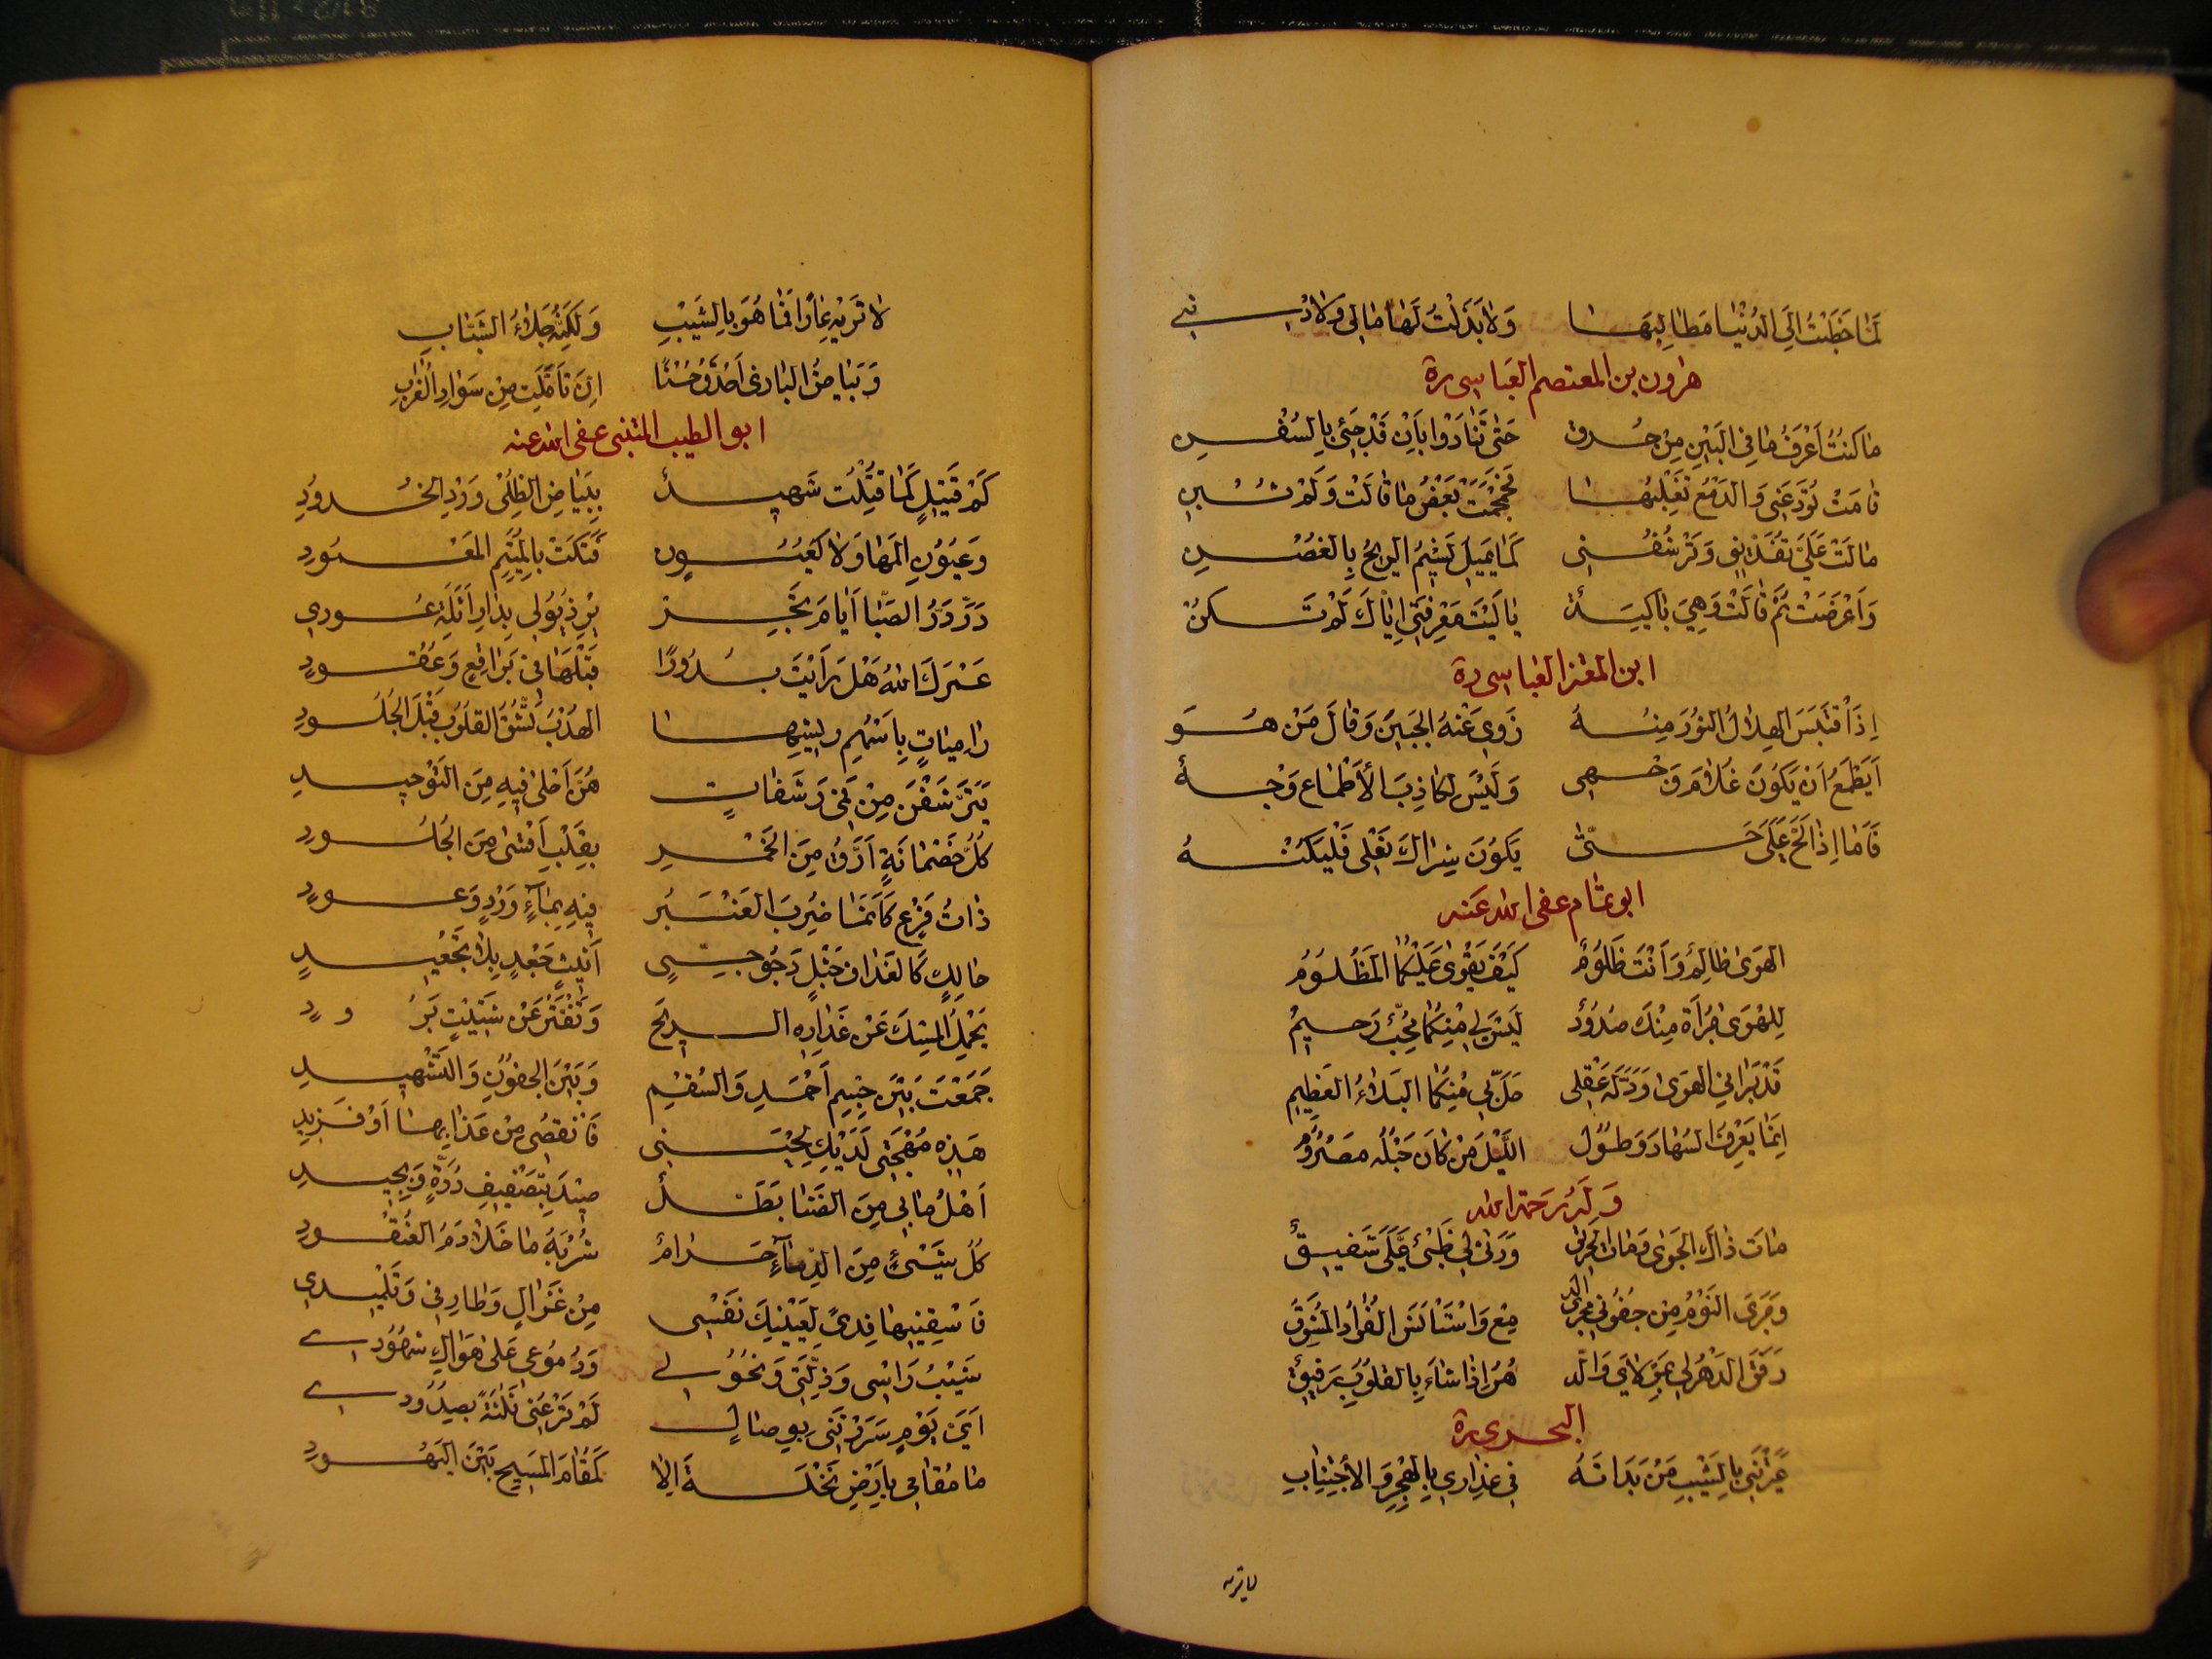 لَمَا خَطَبْتُ اِلَى الدُنْيَا مَطَالِبَهَا وَلَا بَذَلْتُ لَهَا مَالِى وَلَا دِيْنِي
هرون بن المعتصم العباسى ره
مَا كُنْتُ اَعْرَفُ مَا فِى البَيْنِ مِنْ حُرَق حَتّٰى تَنَادَوْا بِاَنْ قَدْ جِئَ بِالسُفُنِ
قَامَتْ تُوَدِّعُنِى وَالدَمْعُ تَغْلِبُهَا فَجَمْجَمَتْ بَعْضَ مَا قَالَتْ وَلَمْ تُبِنِ
مَالَتْ عَلَىَّ تُفَدِّيْنِى وَتَرْشُفُنِى كَمَا يَمِيْلُ نَسِيْمُ الرِيْحِ بِالغُصُنِ
وَاَعْرَضَتْ ثُمَّ قَالَتْ وَهِىَ بَاكِيَةٌ يَا لَيْتَ مَعْرِفَتِى اِيَّاكَ لَمْ تَكُنْ
ابن المعتز العباسى ره
اِذَا اقْتَبَسَ الهِلَالُ النُوْرَ مِنْهُ زَوٰى عَنْهُ الجَبِيْنَ وَقَالَ مَنْ هُوَ
اَيَطْمَعُ اَنْ يَكُوْنَ غُلَامَ وَجْهِى وَلَيْسَ لِكَاذِبِ الأَطْمَاعِ وَجْهُ
فَاَمَّا اِذَا لَحَّ عَلَىَّ حَتّٰى يَكُوْنَ شِرَاكَ نَعْلِى فَلْيَكُنْهُ
ابو تمام عفى الله عنه
الهَوَى ظَالِمٌ وَاَنْتَ ظَلُوْمٌ كَيْفَ يَقْوٰى عَلَيْكُمَا المَظْلُوْمُ
لِلهَوَى جُرْاَةٌ مِنْكَ صُدُوْدٌ لَيْسَ لِى مِنْكُمَا مُحِبٌّ رَحِيْمٌ
قَدْ بَرَانِى الهَوَى وَدَلَّهَ عَقْلِى حَلَّ بِى مِنْكُمَا البَلَاءُ العَظِيْم
اِنَّمَا يَعْرِفُ السُهَادَ وَطُوْلَ اللَيْلِ مَنْ كَانَ حَبْلُهُ مَصْرُوْمُ
وَلَهُ رَحمة الله
مَاتَ ذَاكَ الجَوَى وَمَاتَ الحَرِيْقُ وَرَثٰى لِى ظَبْىٌ عَلَىَّ شَفِيْقٌ
وَجَرَى النَوْمُ مِنْ جُفُوْنِى مَجْرَى الد مْعِ وَاسْتَأْنَسَ الفُؤَادُ المَشُوْقُ
رَقَّقَ الدَهْرُ لِى بِمَوْلَاىَ وَالد هْرُ اِذَا شَاءَ بِالقُلُوْبِ رَفِيْقٌ
البحترى ره
عَيَّرَتْنِى بِالشَيْبِ مَنْ بَدَاَتْهُ فِى عِذَارِى بِالهَجْرِ وَالأِجْتِنَابِ
لا تريه
لَا تَرَيْهِ عَارًا فَمَا هُوَ بِالشَيْبِ وَلَكِنَّهُ جَلَاءُ الشَبَابِ
وَبَيَاضُ البَازِى اَصْدَقُ حُسْنًا اِنْ تَاَمَّلْتِ مِنْ سَوَادِ الغُرَابِ
ابو الطيب المتنبى عفى الله عنه
كَمْ قَتِيْلٍ كَمَا قُتِلْتُ شَهِيْدٌ بِبَيَاضِ الطُلٰى وَوَرْدِ الخُدُوْدِ
وَعُيُوْنِ المَهَا وَلَا كَعُيُوْنٍ فَتَكَتْ بِالمُتَيَّمِ المَعْمُوْدِ
دَرَّ دَرُّ الصِبَا اَيَامَ تَجْرِيْر ذُيُوْلِى بِدَارِ اَثْلَةَ عُوْدِى
عَمْرَكَ اللهُ هَلْ رَاَيْتَ بُدُوْرًا قَبْلَهَا فِى بَرَاقِعٍ وَعُقُوْدٍ
رَامِيَاتٍ بِاَسْهُمٍ رِيْشُهَا الهُدْبُ تَشُقُّ القُلُوْبَ قَبْلَ الجُلُوْدِ
يَتَرَشَّفْنَ مِنْ فَمِى رَشَفَاتٍ هُنَّ اَحْلٰى فِيْهِ مِنَ التَوْحِيْدِ
كُلُّ خَمْصَانَةٍ اَرَقُّ مِنَ الخَمْرِ بِقَلْبٍ اَقْسٰى مِنَ الجُلْمُوْدِ
ذَاتُ فَرْعٍ كَاَنَّمَا ضُرِبَ العَنْبَرُ فِيْهِ بِمَآءٍ وَرْدٍ وَعُوْدٍ
حَالِكٍ كَالغُدَافِ جَثْلٍ دَجُوْجِىٍّ اَثِيْثٍ جَعْدٍ بِلَا تَجْعِيْدِ
يَحْمِلُ المِسْكَ عَنْ غَدَائِرِهِ الرِيْحُ وَتَفْتَرُّ عَنْ شَتِيْتٍ بَرُوْدٍ
جَمَعَتْ بَيْنَ جِسْمِ اَحْمَدِ وَالسُقْمِ وَبَيْنَ الجُفُوْنِ وَالتَسْهِيْدِ
هَذِهِ مُهْجَتِى لَدَيْكِ لِحَيْنِى فَانْقُصِى مِنْ عَذَابِهَا اَوْ فَزِيْدِ
اَهْلُ مَا بِى مِنَ الضَنَا بَطَلٌ صِيْدَ بِتَصْفِيْفِ دُرَّةٍ وَبِجِيْدِ
كُلُّ شَيْئٍ مِنَ الدِمَآءِ حَرَامٌ شُرْبُهُ مَا خَلَا دَمَ العُنْقُوْدِ
فَاسْقِنِيْهَا فِدىً لِعَيْنَيْكَ نَفْسِى مِنْ غَزَالٍ وَطَارِفِى وَتَلِيْدِى
شَيْبُ رَاْسِى وَذِلَّتِى وَنُحُوْلِى وَدُمُوْعِى عَلٰى هَوَاكِ شُهُوْدِى
اَىُّ يَوْمٍ سَرَرْتَنِى بِوِصَالٍ لَمْ تَرُعْنِى ثَلٰثَةً بِصُدُوْدِ
مَا مُقَامِى بِاَرْضِ نَخْلَةَ اِلَّا كَمُقَامِ المَسِيْحِ بَيْنَ اليَهُوْدِ